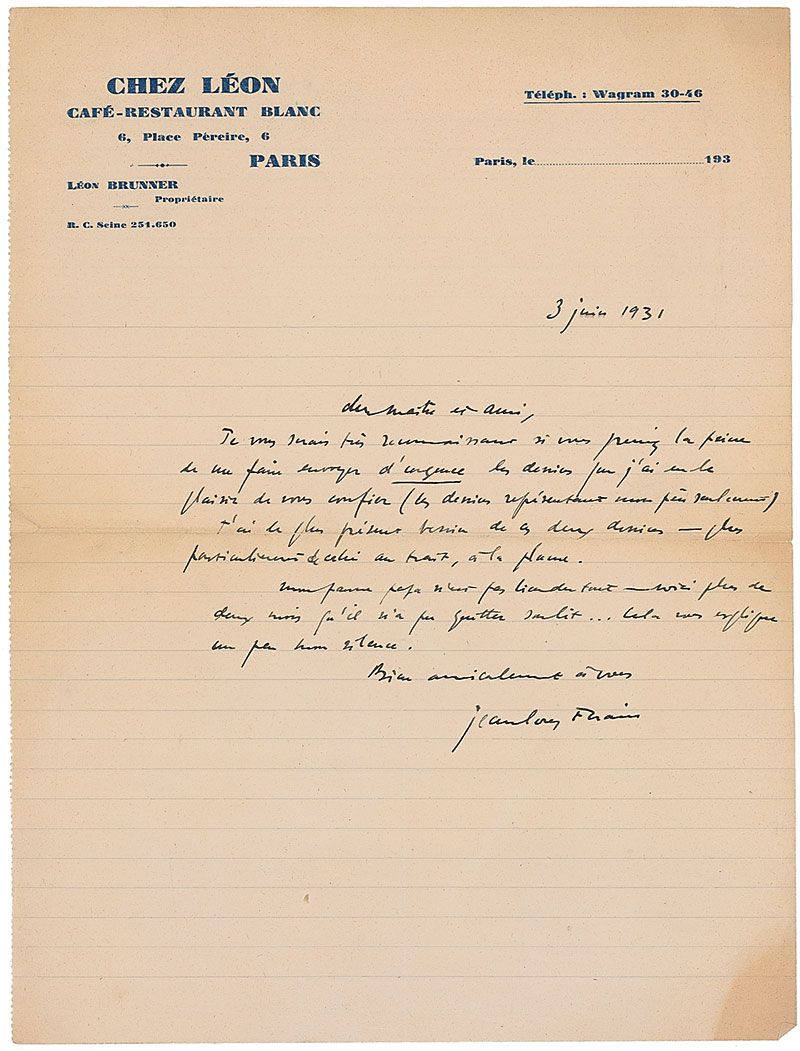 CHEZ LÉON
CAFÉ-RESTAURANT BLANC
6, Place Péreire, 6
PARIS
LÉON BRUNNER
Propriétaire
R. C. Seine 251.650
Téléph. : Wagram 30-46
Paris, le 193
3 juin 1931
cher maître et ami,
Je vous serais très reconnaissant si vous preniez la peine
de me faire envoyer d'urgence les dessins que j'ai eu le
plaisir de vous confier (les dessins représentant mon père seulement)
J'ai le plus présent besoin de ces deux dessins — plus
particulièrement de celui au trait, à la plume.
mon pauvre papa n'est pas bien du tout — voici plus de
deux mois qu'il n'a pu quitter son lit... Cela vous explique
un peu mon silence.
Bien amicalement à vous